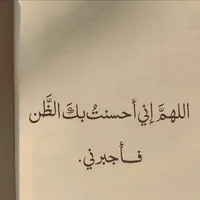 اللهمَّ إني أحسنتُ بكَ الظَّن
فأجبرني.